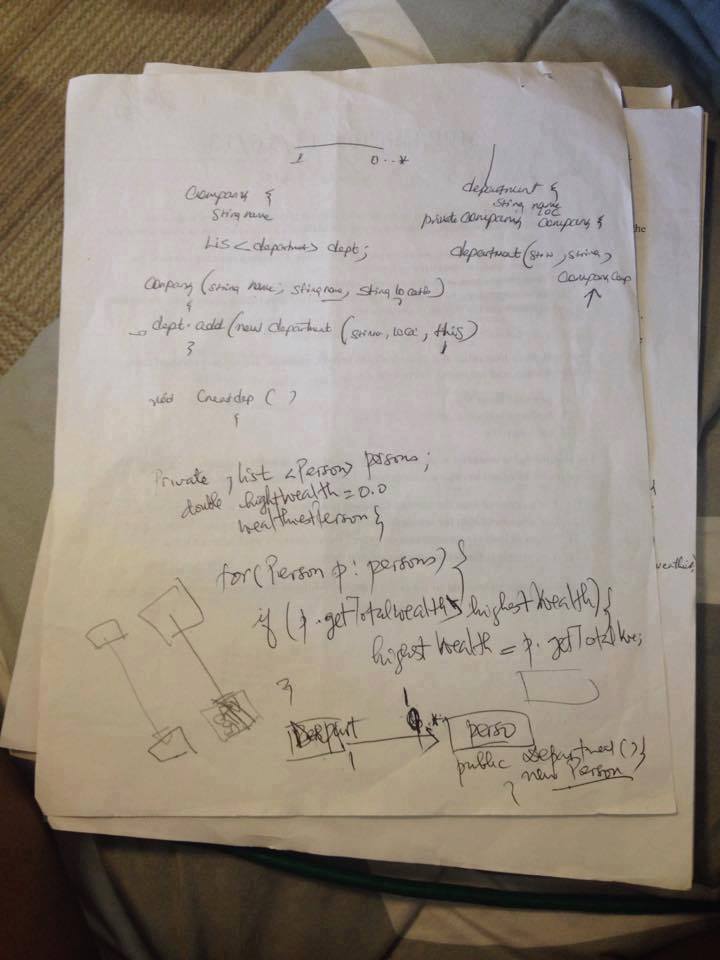 1 0..*
Company {
String name
Lis <department> dept;
Company (String name, String name, String locatn)
{
dept.add(new department (String, loca, this)
}
void Creatdep ( )
{
department {
String name
loc
private Company Company {
department(Strin, String,
Company Comp
Private , List <Person> persons;
double highWealth = 0.0
wealthiestPerson {
for(Person p : persons) {
if (p.getTotalwealth > highestWealth) {
highest Wealth = p.getTotalWe;
}
1
Depart *
perso
1
public Department() {
new Person
}